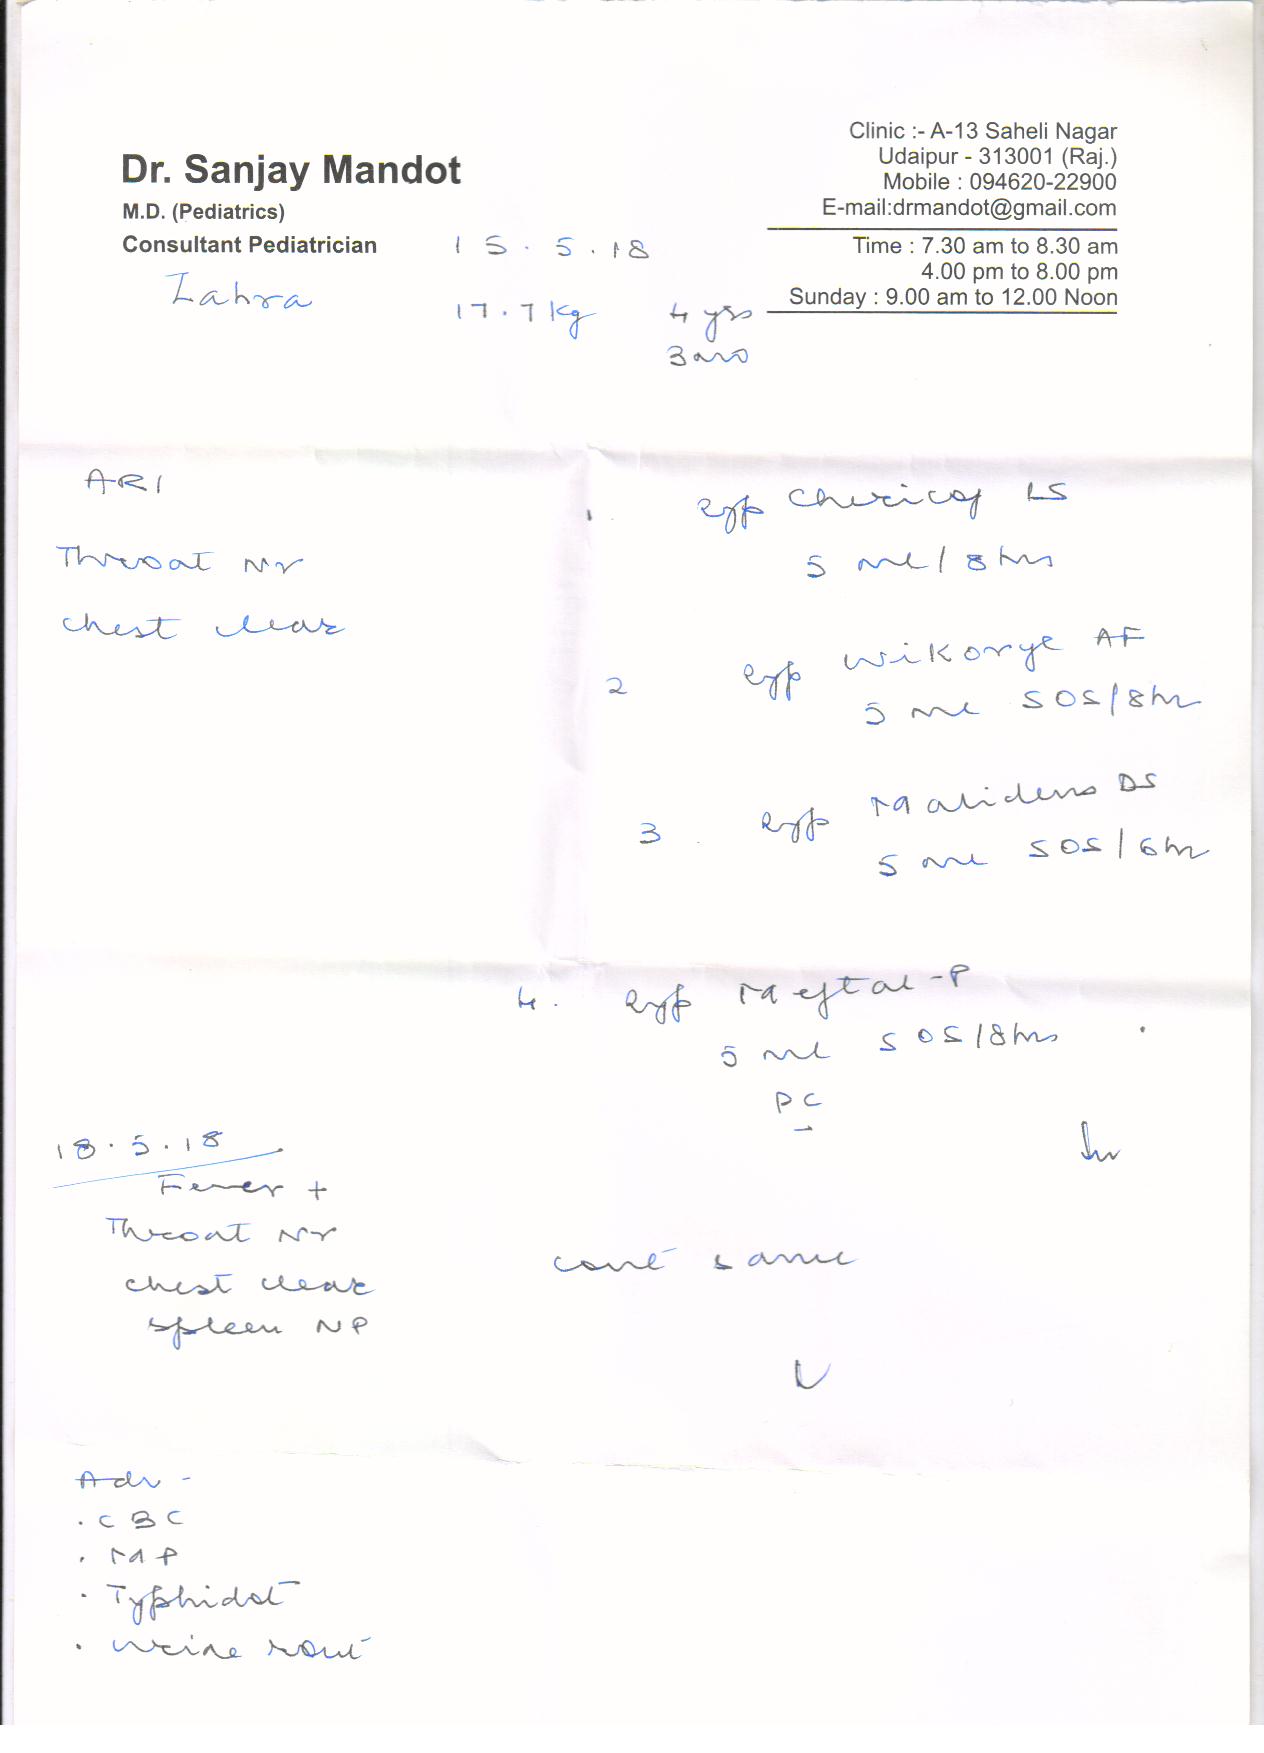 Dr. Sanjay Mandot
M.D. (Pediatrics)
Consultant Pediatrician
Clinic :- A-13 Saheli Nagar
Udaipur - 313001 (Raj.)
Mobile : 094620-22900
E-mail:drmandot@gmail.com
Time : 7.30 am to 8.30 am
4.00 pm to 8.00 pm
Sunday : 9.00 am to 12.00 Noon
15.5.18
Zahra
17.7 kg 4 yrs
3
ARI
Throat Nr
chest clear
1 Syp LS
5 ml/8hrs
2 Syp Wikoryl AF
5 ml SOS/8hr
3. Syp DS
5 ml SOS/6hr
4. Syp Meftal-P
5 ml SOS/8hrs
PC
18.5.18
Fever +
Throat Nr
chest clear
spleen NP
cont same
Adv -
. CBC
. MP
. Typhidot
. urine rout